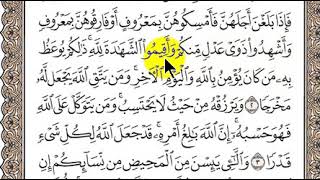 فَإِذَا بَلَغْنَ أَجَلَهُنَّ فَأَمْسِكُوهُنَّ بِمَعْرُوفٍ أَوْ فَارِقُوهُنَّ بِمَعْرُوفٍ
وَأَشْهِدُوا۟ ذَوَىْ عَدْلٍ مِّنكُمْ وَأَقِيمُوا۟ ٱلشَّهَٰدَةَ لِلَّهِ ۚ ذَٰلِكُمْ يُوعَظُ
بِهِۦ مَن كَانَ يُؤْمِنُ بِٱللَّهِ وَٱلْيَوْمِ ٱلْءَاخِرِ ۚ وَمَن يَتَّقِ ٱللَّهَ يَجْعَل لَّهُۥ
مَخْرَجًا ٢ وَيَرْزُقْهُ مِنْ حَيْثُ لَا يَحْتَسِبُ ۚ وَمَن يَتَوَكَّلْ عَلَى ٱللَّهِ
فَهُوَ حَسْبُهُۥٓ ۚ إِنَّ ٱللَّهَ بَٰلِغُ أَمْرِهِۦ ۚ قَدْ جَعَلَ ٱللَّهُ لِكُلِّ شَىْءٍ
قَدْرًا ٣ وَٱلَّٰٓـِٔى يَئِسْنَ مِنَ ٱلْمَحِيضِ مِن نِّسَآئِكُمْ إِنِ